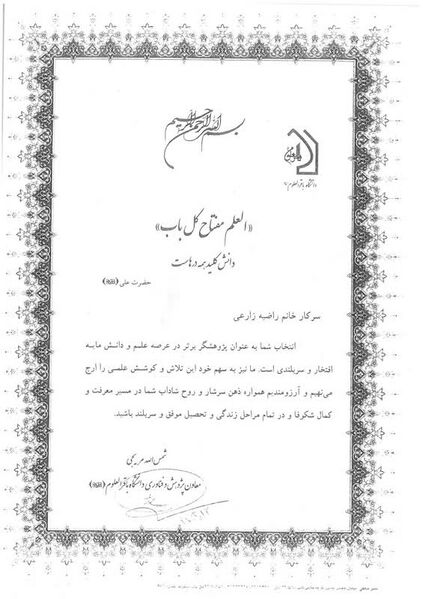 بسم الله الرحمن الرحیم
دانشگاه باقرالعلوم
«العلم مفتاح کل باب»
دانش کلید همه درهاست
حضرت علی
سرکار خانم راضیه زارعی
انتخاب شما به عنوان پژوهشگر برتر در عرصه علم و دانش مایه
افتخار و سربلندی است. ما نیز به سهم خود این تلاش و کوشش علمی را ارج
می‌نهیم و آرزومندیم همواره ذهن سرشار و روح شاداب شما در مسیر معرفت و
کمال شکوفا و در تمام مراحل زندگی و تحصیل موفق و سربلند باشید.
شمس الله مریجی
معاون پژوهش و فناوری دانشگاه باقرالعلوم